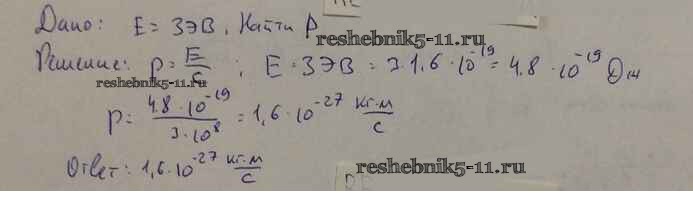 Дано: E = 3эВ, Найти P
reshebnik5-11.ru
Решение: p = E/c ; E = 3эВ = 3·1,6·10⁻¹⁹ = 4,8·10⁻¹⁹ Дж
reshebnik5-11.ru
p = 4,8·10⁻¹⁹/3·10⁸ = 1,6·10⁻²⁷ кг·м/с
Ответ: 1,6·10⁻²⁷ кг·м/с
reshebnik5-11.ru